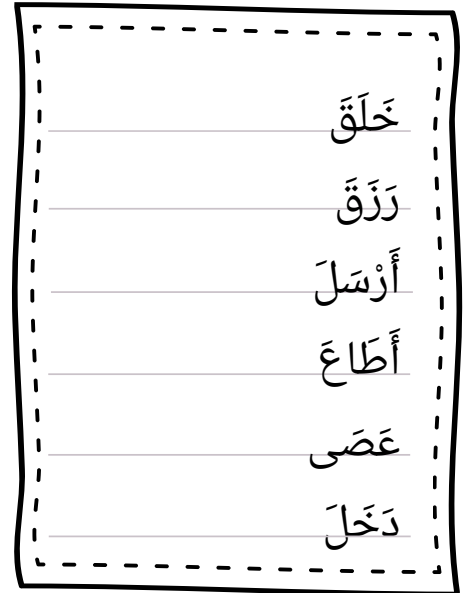 خَلَقَ
رَزَقَ
أَرْسَلَ
أَطَاعَ
عَصَى
دَخَلَ